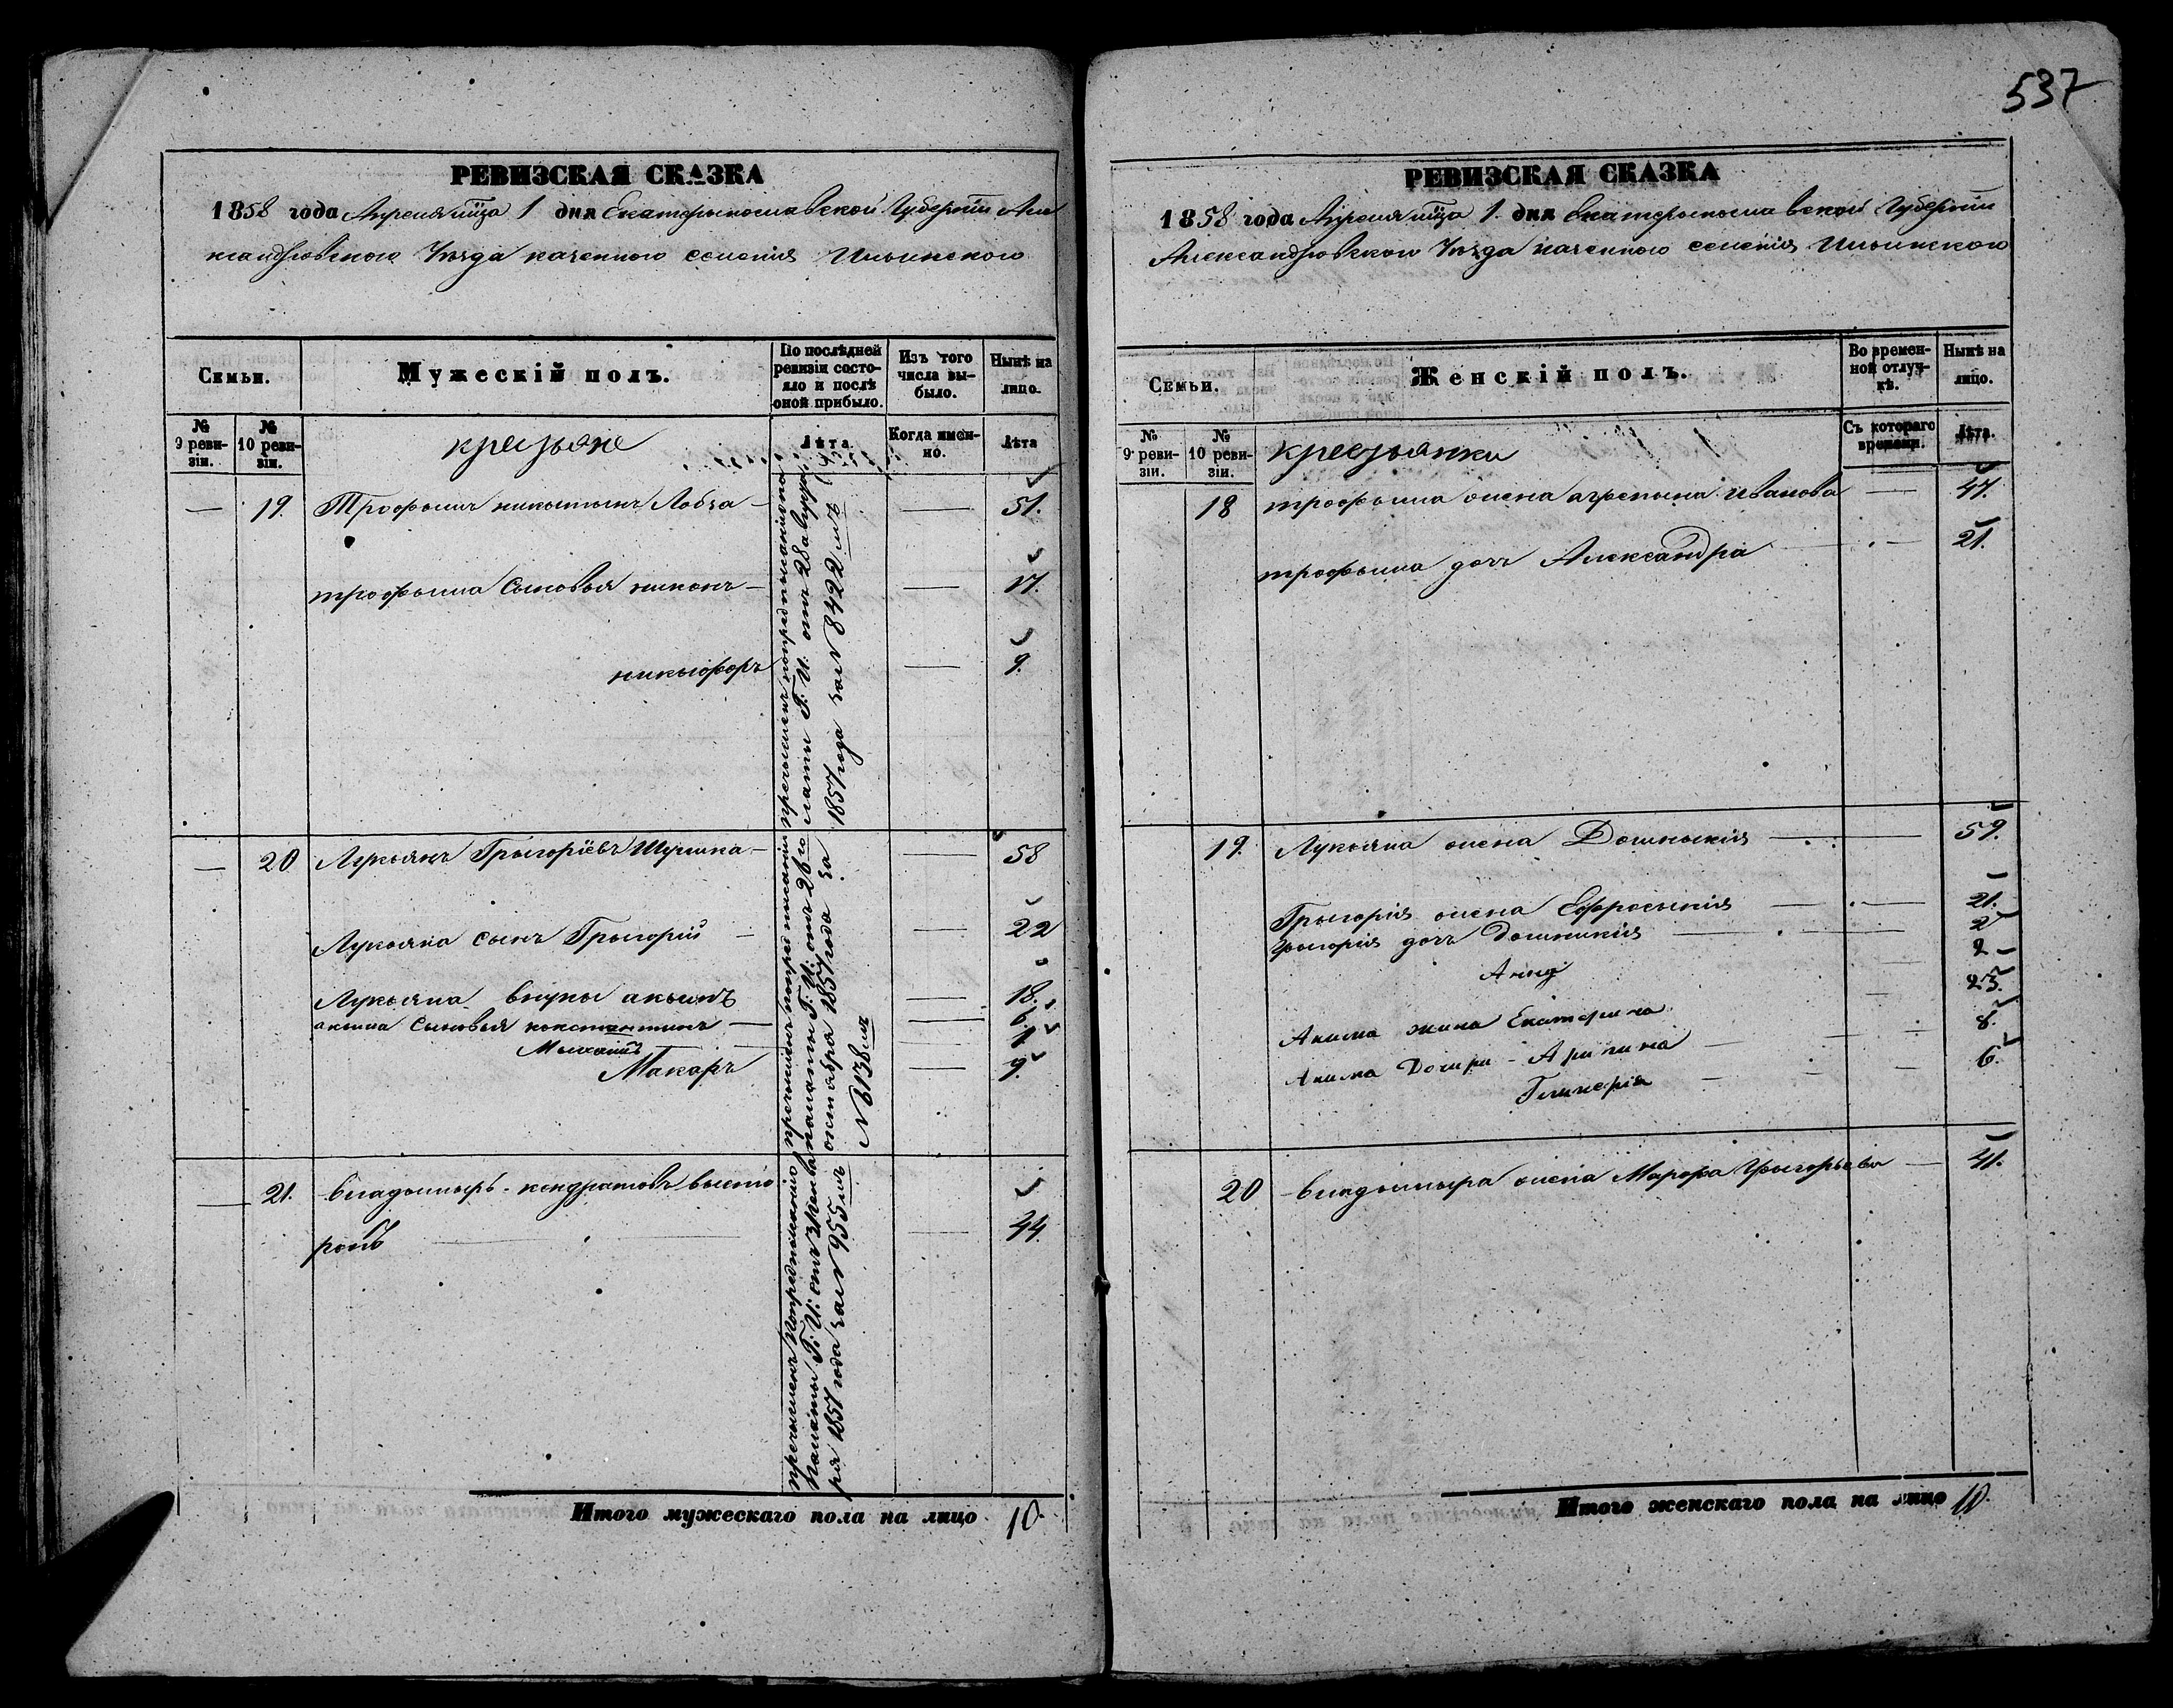 537
РЕВИЗСКАЯ СКАЗКА
1858 года Апреля мца 1 дня Екатерынославской Губернїи Але
ксандровского Уѣзда казенного селенія Ильинского
Семьи.
Мужескій полъ.
По послѣдней ревизіи состояло и послѣ оной прибыло.
Изъ того числа выбыло.
Нынѣ на лицо.
№ 9 ревизіи.
№ 10 ревизіи.
крестьяне
Лѣта
Когда именно.
Лѣта
— 19. Трофымъ никытынъ Лобза — — 51.
трофыма сыновья никонъ — — 17.
никыфоръ — 9.
пречысленъ попредпысанію
латы Г. И. отъ 28 авгу
1857 года за № 8422 мъ
— 20 Лукьянъ Грыгорїевъ — — 58
Лукьяна сынъ Грыгорій — — 22
Лукьяна внукы акымъ — 18.
акыма сыновья константинъ — — 6.
Мыхаилъ — 1
Макаръ — 9.
пречысленъ попредпысанію
палаты Г. И. отъ 26 го
октября 1857 года за
№ 6138 мъ
— 21. владымыръ кондратовъ
— 44.
пречысленъ попредпысанію
Палаты Г. И. отъ
ря 1857 года за № 955 мъ
Итого мужескаго пола на лицо 10.
РЕВИЗСКАЯ СКАЗКА
1858 года Апреля мца 1. дня Екатерынославской Губернїи
Александровского Уѣзда казенного селенія Ильинского
Семьи.
Женскій полъ.
Во временной отлучкѣ.
Нынѣ на лицо.
№ 9 ревизіи.
№ 10 ревизіи.
крестьянки
Съ котораго времени.
Лѣта.
18 трофыма жена агрепына иванова — 47.
трофыма дочь Александра — 21.
19. Лукьяна жена Домныкия — 59.
Грыгорія жена Ефросыния — 21.
Грыгорія дочь Домникія — 2
Анна — 2
Акима жина Екатерина — 25.
Акима Дочири - Арипина — 8.
Гликерія — 6.
20 владымыра жена Марфа Грыгорьева — 41.
Итого женскаго пола на лицо 10.